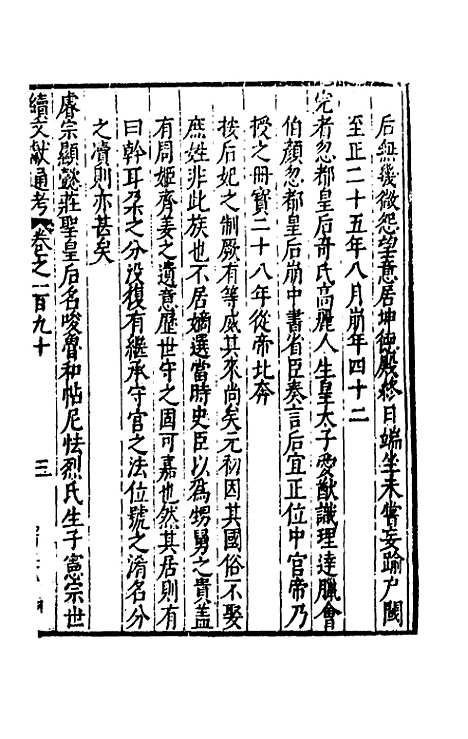 后無幾微怨望意居坤德殿終日端坐未嘗妄踰戶閾
至正二十五年八月崩年四十二
完者忽都皇后奇氏高麗人生皇太子愛猷識理達臘會
伯顏忽都皇后崩中書省臣奏言后宜正位中宮帝乃
授之冊寶二十八年從帝北奔
按后妃之制厥有等威其來尚矣元初因其國俗不娶
庶姓非此族也不居嫡選當時史臣以為甥舅之貴蓋
有周姬齊姜之遺意歷世守之固可嘉也然其居則有
曰斡耳朶之分沒復有繼承守宮之法位號之淆名分
之瀆則亦甚矣
睿宗顯懿莊聖皇后名唆魯和帖尼怯烈氏生子憲宗世
續文獻通考 卷之一百九十 三